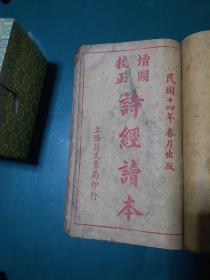 民國十四年春月出版
增圖
校正
詩經讀本
上海昌文書局印行